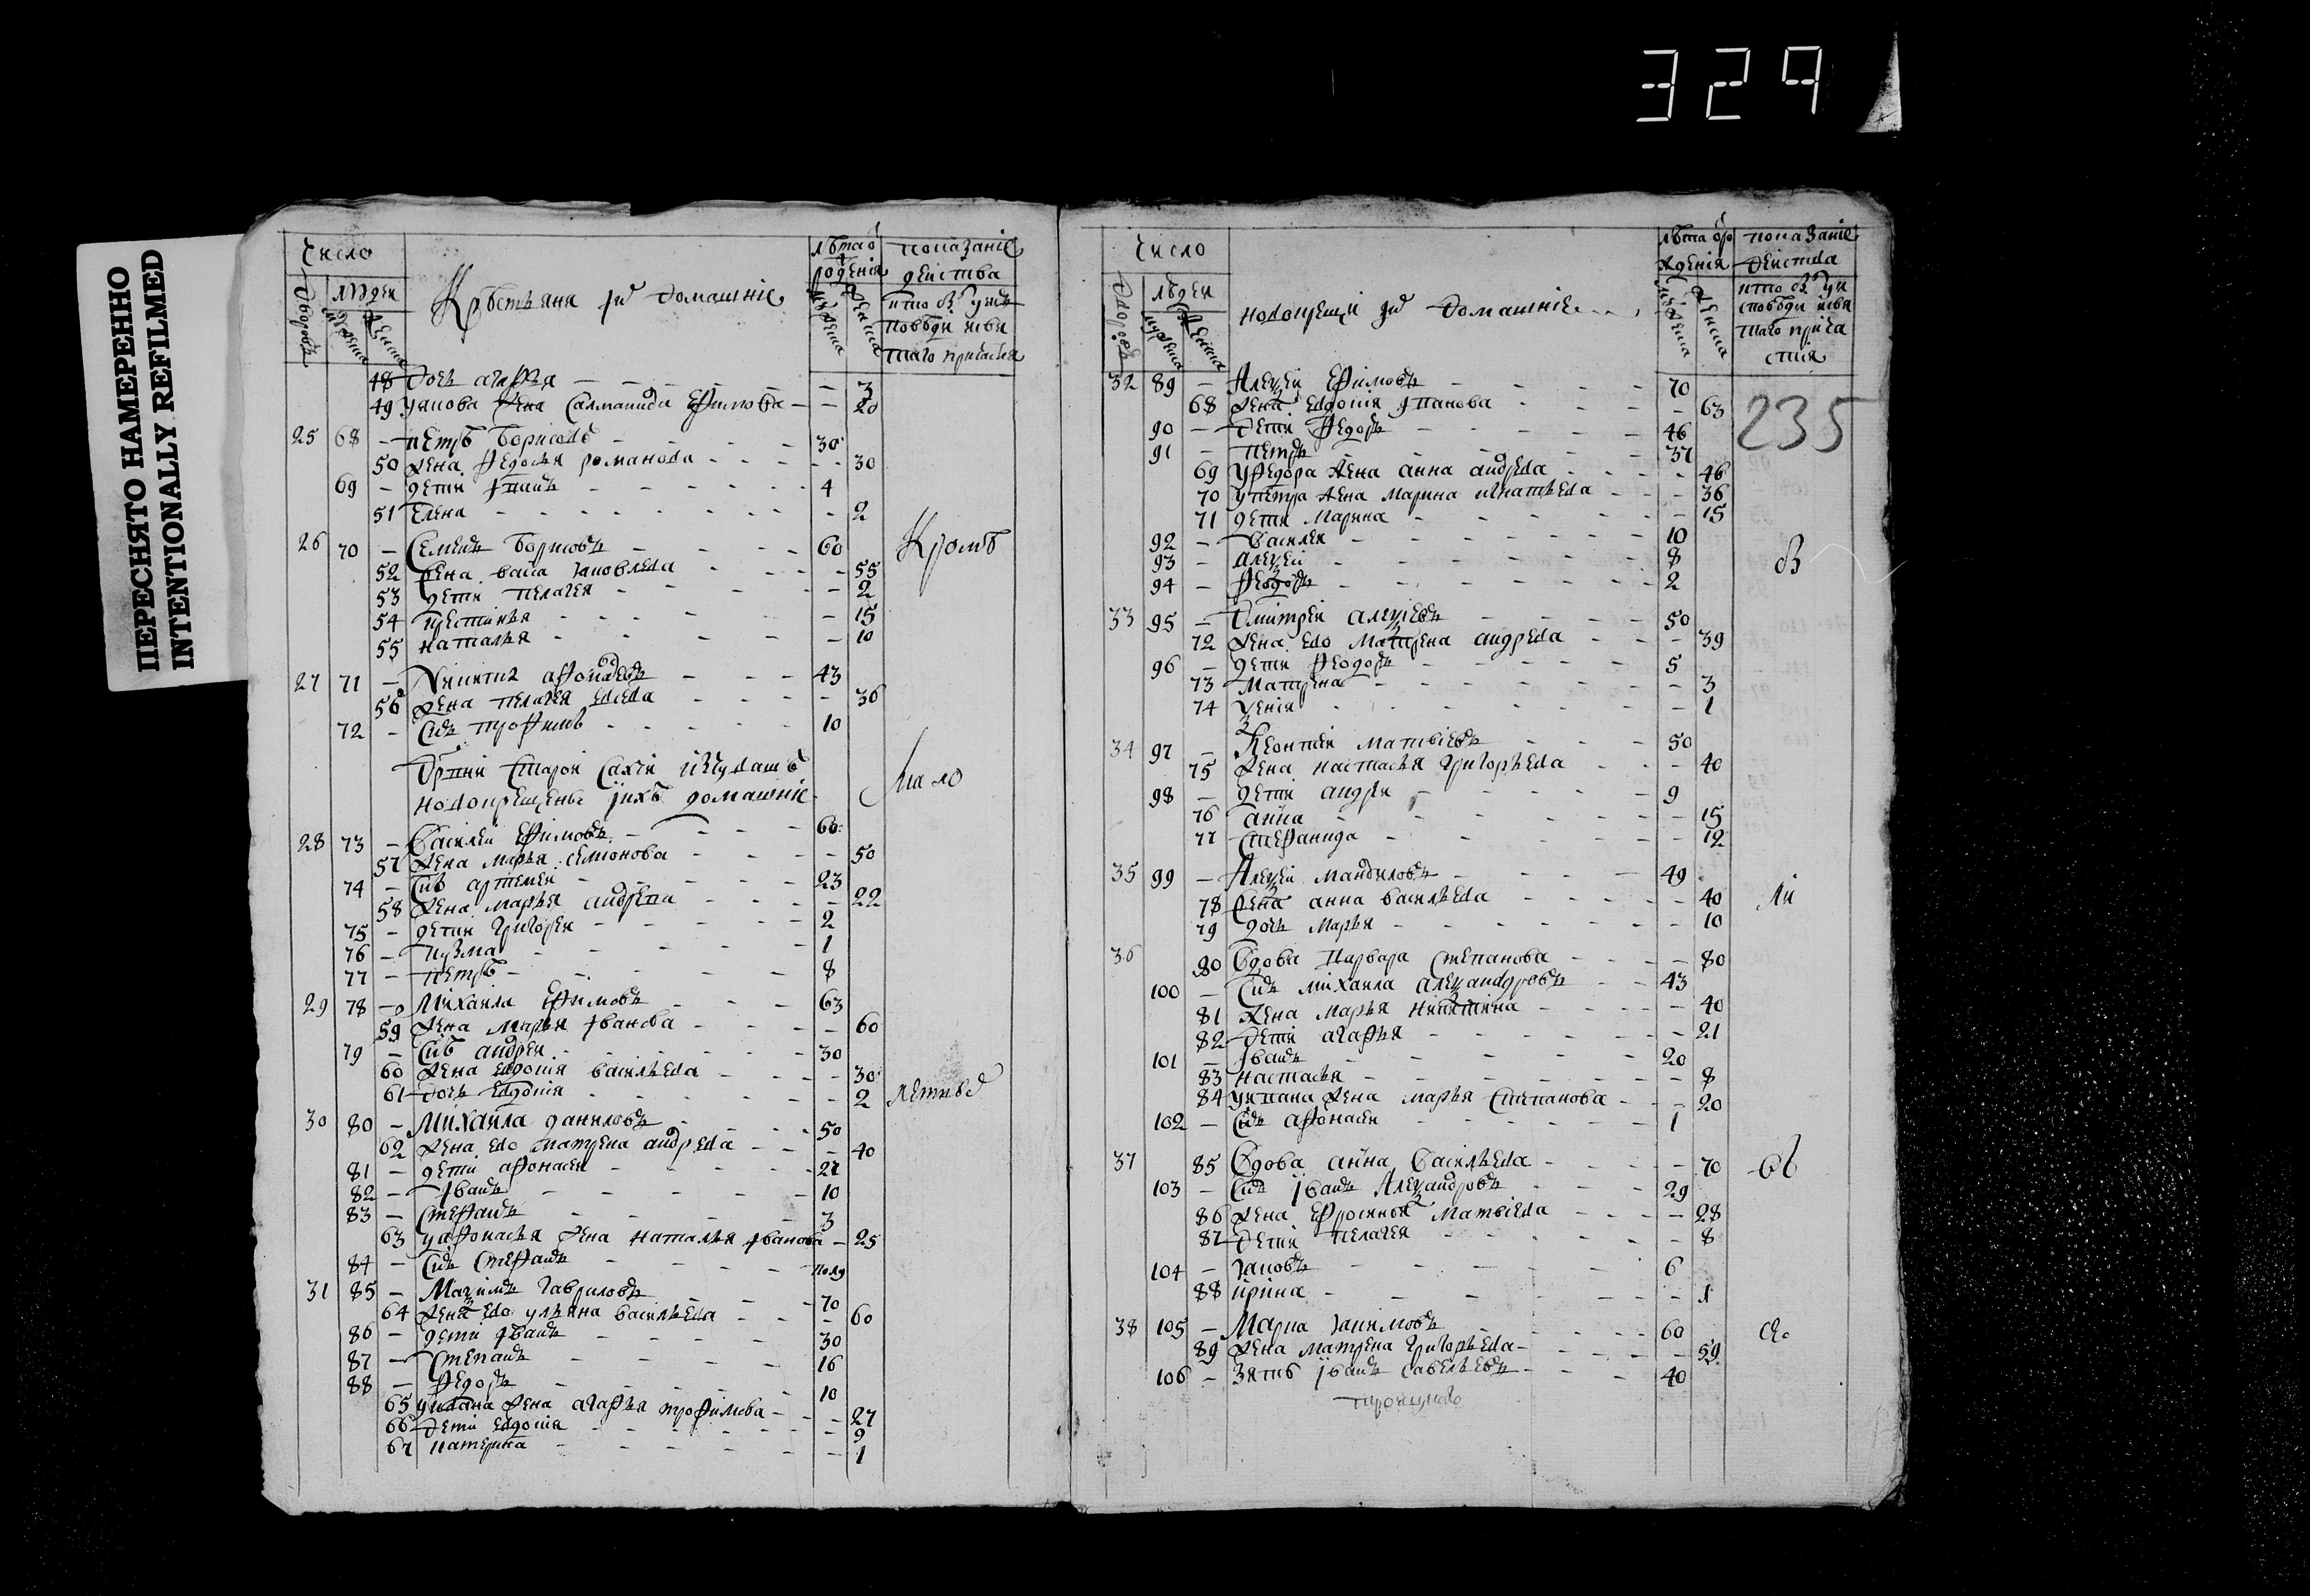 329
ПЕРЕСНЯТО НАМЕРЕННО
INTENTIONALLY REFILMED
Число
людеи
Дворовъ
мужеска
женска
Крѣстьяня ихъ домашніе
лѣта о
рожденія
мужеска
женска
показаніе
деиства
кто былъ
повѣди исвя
таго причастия
48 Дочь агафья - - 3
49 уякова жена Саламанида Ефимова - - 20
25 68 - петръ борисовъ - 30
50 жена Федосья романова - - 30
69 - дети Іванъ - 4
51 Елена - - 2
26 70 - Семенъ борисовъ - 60
52 жена васа яковлева - - 55
53 дети пелагея - - 2
54 - - 15
55 наталья - - 10
Кромѣ
27 71 - Никита афонасевъ - 43
56 жена пелагея - 36
72 - Снъ трофимъ - 10
новокрещены ихъ домашніе
мало
28 73 - Василеи Ефимовъ - 60
57 жена марья семионова - - 50
74 - Снъ артемеи - 23
58 жена марья андрева - - 22
75 - дети григореи - 2
76 - кузма - 1
77 - петръ - 8
29 78 - Михаила Ефимовъ - 63
59 жена Марья Іванова - - 60
79 - Снъ андреи - 30
60 жена евдокия васильева - - 30
61 дочь евдокия - - 2
летныхъ
30 80 - Михаила даниловъ - 50
62 жена ево матрена андрева - - 40
81 - дети афонасеи - 27
82 - Іванъ - 10
83 - Стефанъ - 3
63 уафонасья жена наталья Іванова - 25
84 - Снъ Стефанъ - полу
31 85 - Маѯимъ гавриловъ - 70
64 жена ево ульяна васильева - - 60
86 - дети Іванъ - 30
87 - Степанъ - 16
88 - Федоръ - 10
65 уивана жена агафья трофимова - - 27
66 дети евдокия - - 9
67 катерина - - 1
Число
людеи
Дворовъ
мужеска
женска
новокрещени ихъ домашніе
лѣта о ро
жденія
мужеска
женска
показаніе
деиства
кто былъ у и
споведи исвя
таго прича
стия
235
32 89 - Алеѯеи Ефимовъ - 70
68 жена евдокия Іванова - - 63
90 - дети Федоръ - 46
91 - петръ - 37
69 уФедора жена анна андрева - - 46
70 упетра жена марина игнатьева - - 36
71 дети Марина - - 15
92 - Василеи - 10
93 - алеѯеи - 8
94 - Федоръ - 2
33 95 - Дмитреи алеѯіевъ - 50
72 жена ево матрена андрева - - 39
96 - дети Феодоръ - 5
73 Матрена - - 3
74 Ѯения - - 1
34 97 - Леонтеи матвіевъ - 50
75 жена настасья григорьева - - 40
98 - дети андреи - 9
76 анна - - 15
77 Стефанида - - 12
35 99 - Алеѯеи маниловъ - 49
78 жена анна васильева - - 40
79 дочь Марья - - 10
36 80 Вдова варвара степанова - - 80
100 - Снъ михаила алеѯандровъ - 43
81 жена марья никитина - - 40
82 дети агафья - - 21
101 - Іванъ - 20
83 настасья - - 8
84 уивана жена марья степанова - - 20
102 - Снъ афонасеи - 1
37 85 Вдова анна васильева - - 70
103 - Снъ Іванъ алеѯандровъ - 29
86 жена ефросинья Матвіева - - 28
87 дети пелагея - - 8
104 - яковъ - 6
88 ирина - - 1
38 105 - Марка якимовъ - 60
89 жена матрена григорьева - - 59
106 - зять Іванъ савельевъ - 40